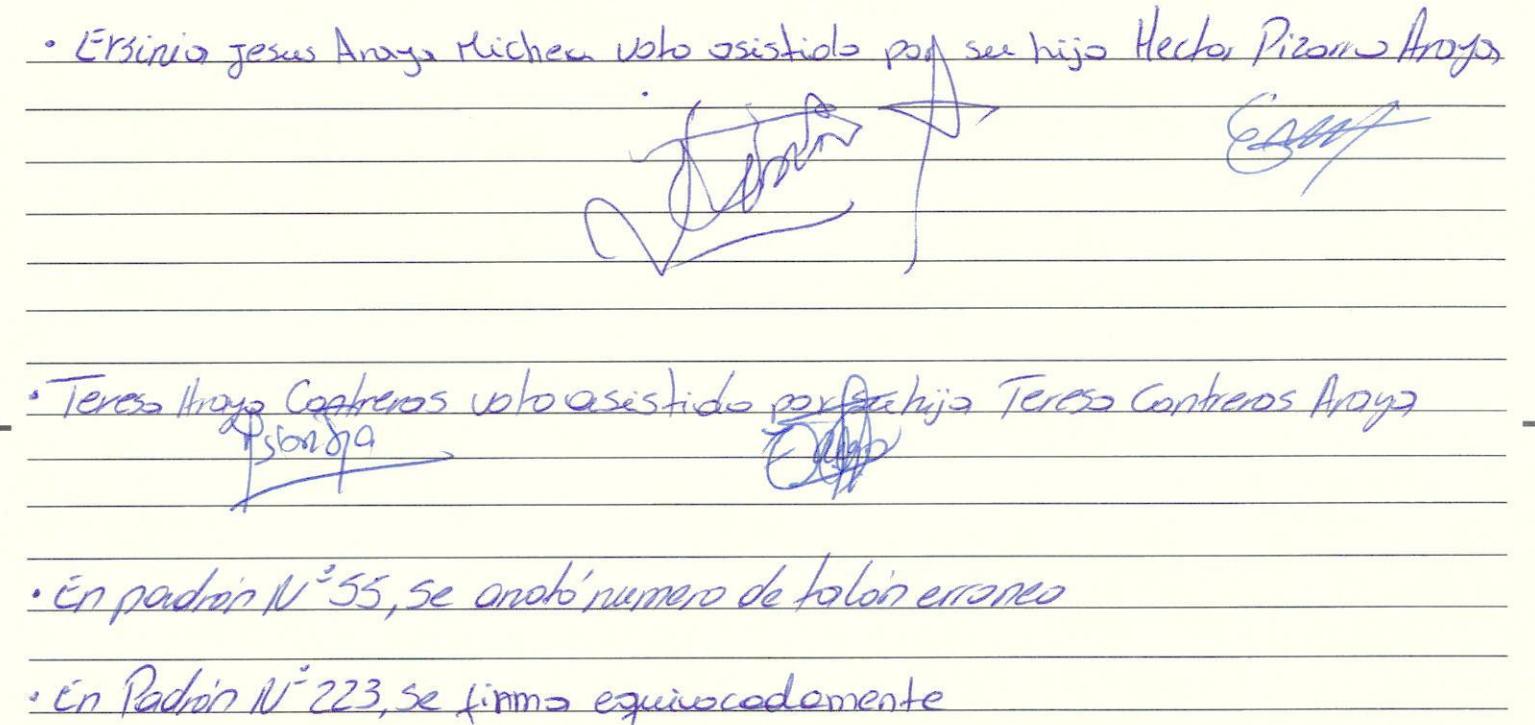 • Ersinia Jesus Araya Michea voto asistido por su hijo Hector Pizarro Araya
• Teresa Araya Contreras voto asistido por su hija Teresa Contreras Araya
• En padrón N° 55, se anotó numero de talón erroneo
• En Padrón N° 223, se firma equivocadamente